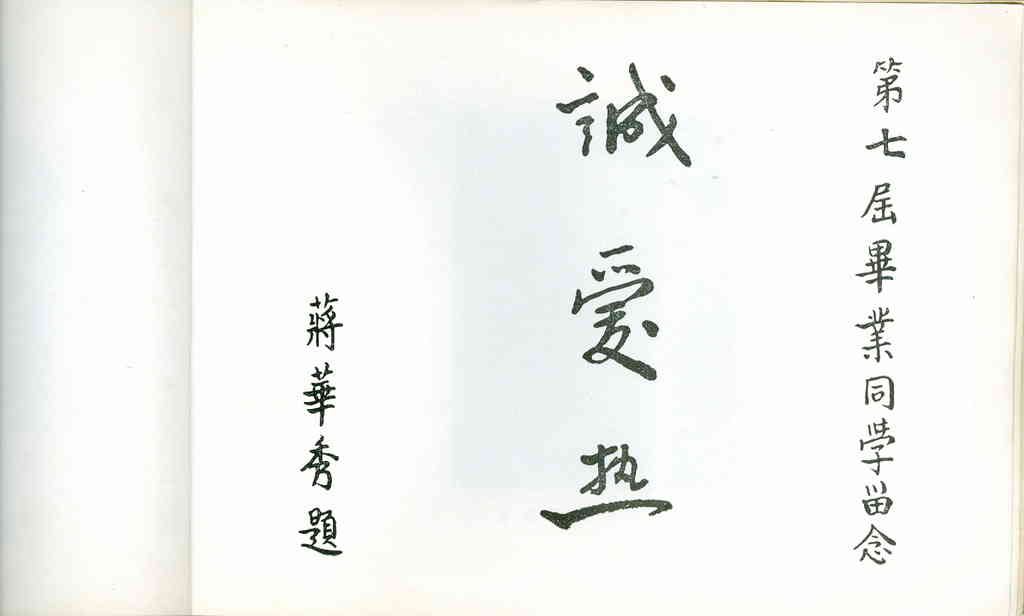 第七屆畢業同學畄念
誠愛热
蔣華秀題